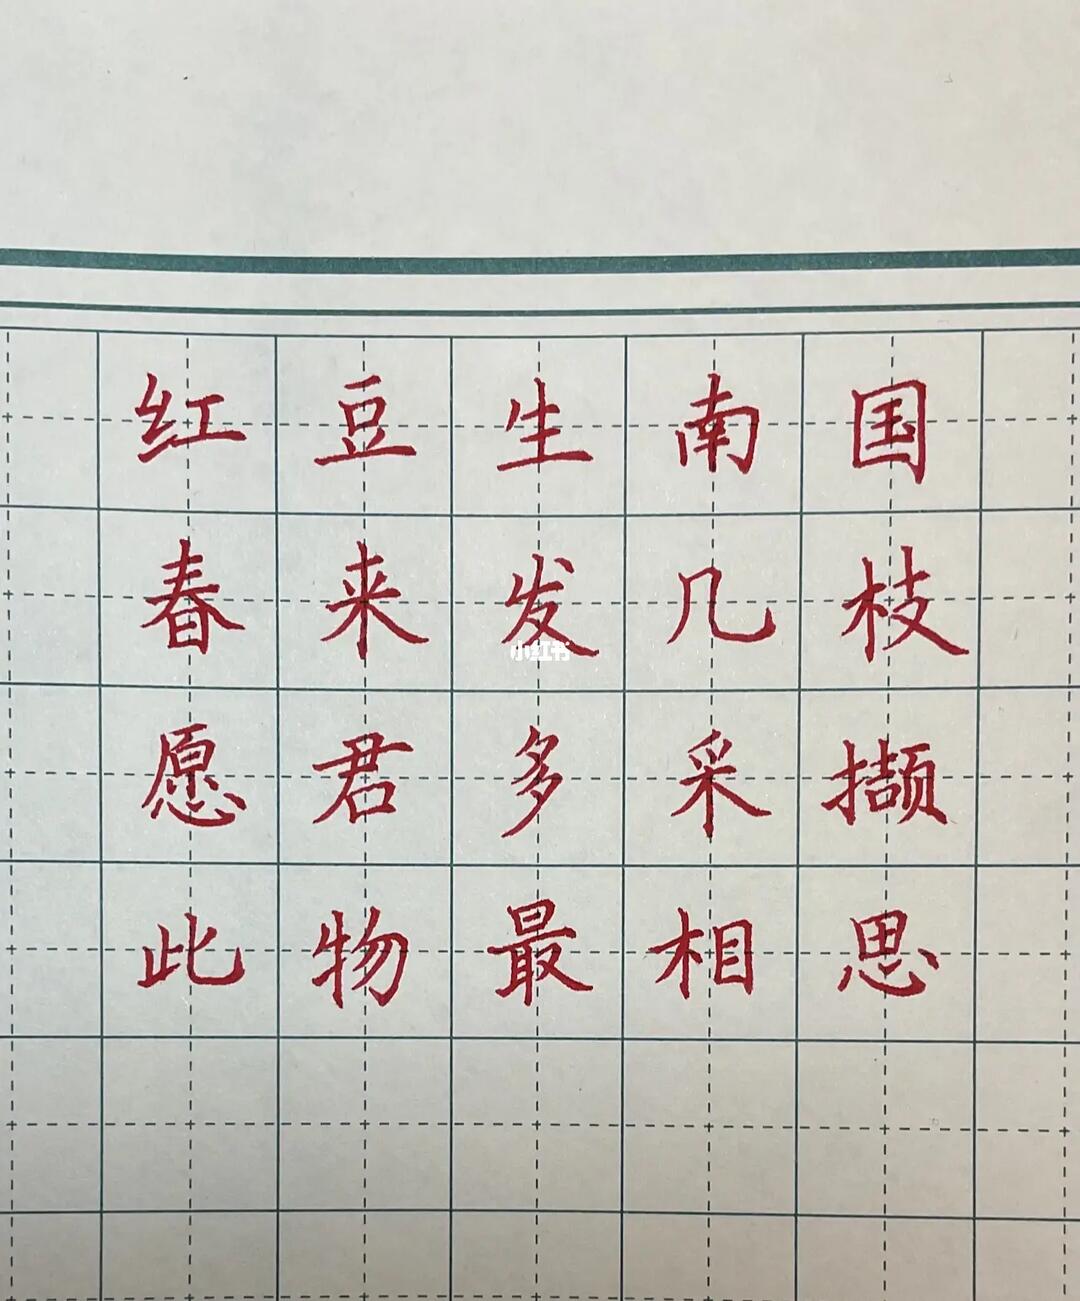 红豆生南国
春来发几枝
小红书
愿君多采撷
此物最相思